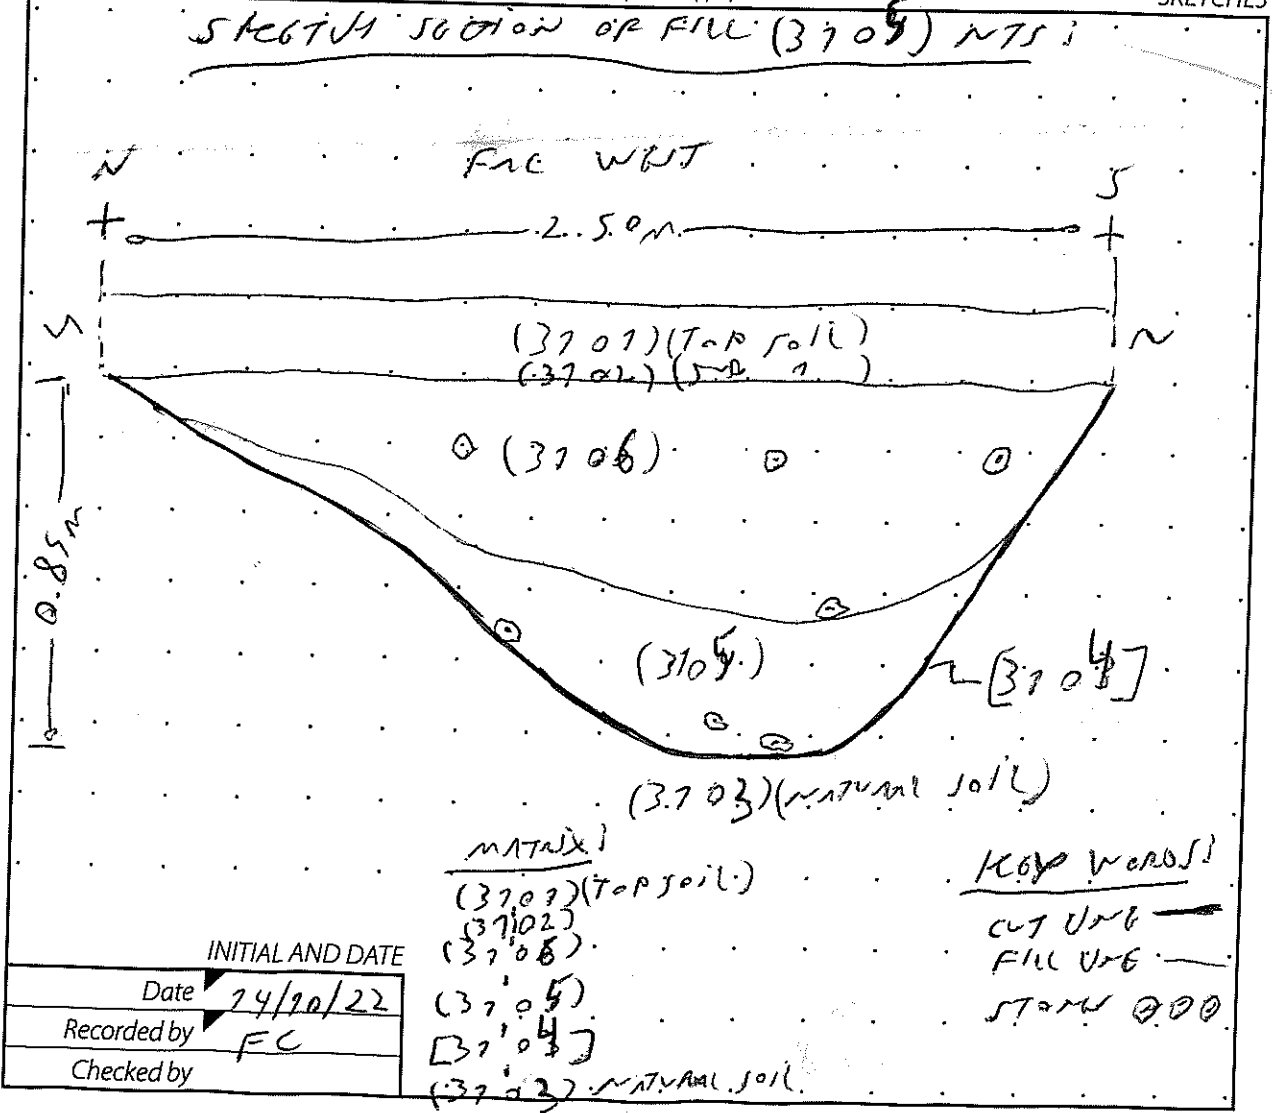 SKETCHES
SKETCH SECTION OF FILL (3705) NTS:
N
FACE WEST
S
2.50m
S
(3701)(Top soil)
N
(3702)(SUB )
(3706)
0.85m
(3705)
[3704]
(3703)(NATURAL SOIL)
MATRIX:
(3701)(TOPSOIL)
(3702)
(3706)
(3705)
[3704]
(3703) NATURAL SOIL
KEY WORDS:
CUT LINE
FILL LINE
STONES
INITIAL AND DATE
Date 14/10/22
Recorded by FC
Checked by